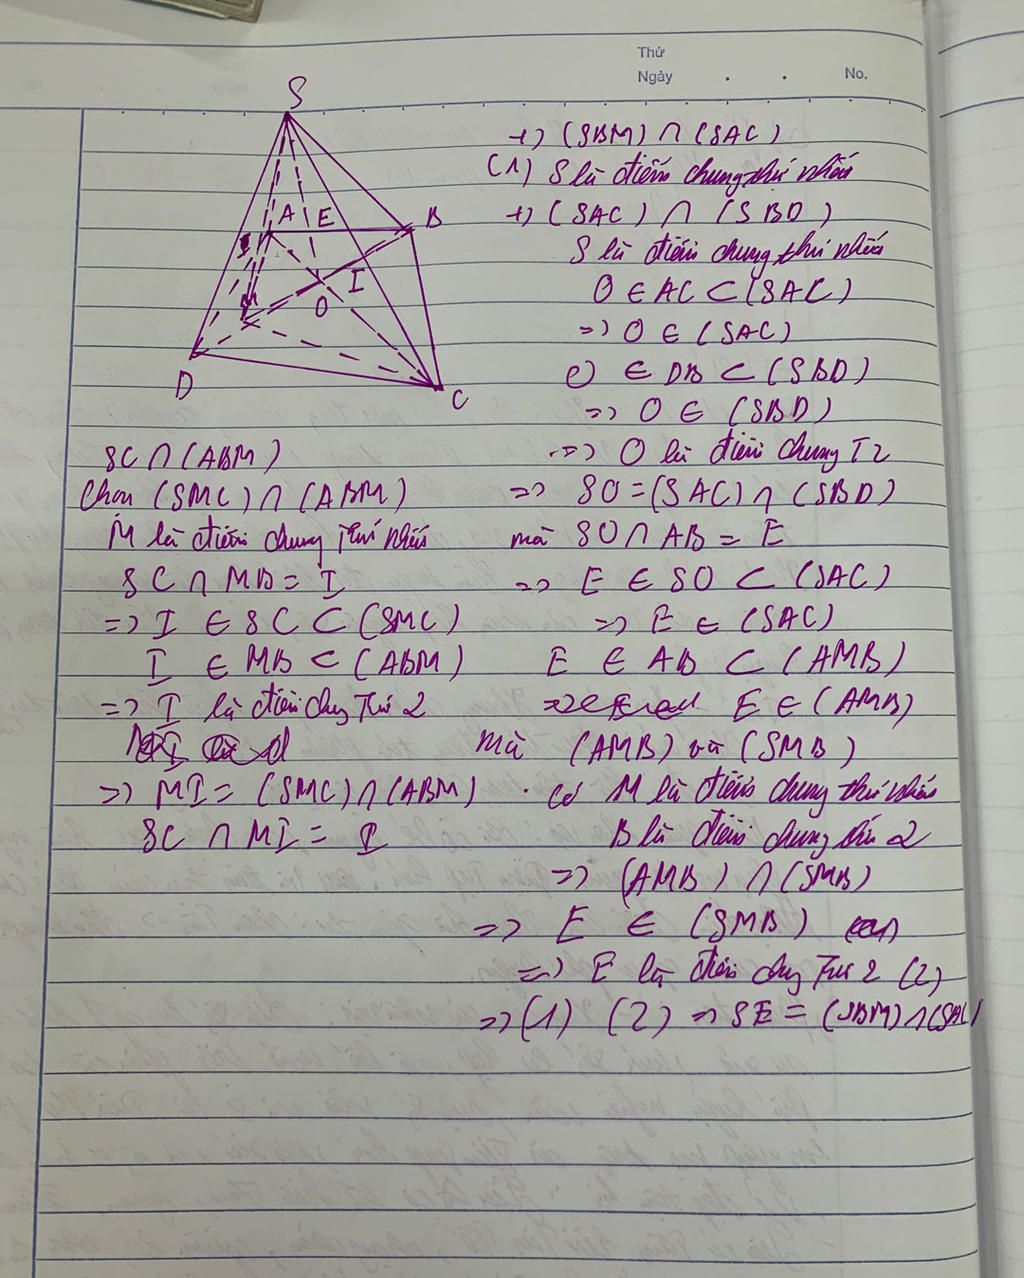 Thứ
Ngày . . No.
S
A E B
I
O
M
D
C
+) (SBM) ∩ (SAC)
(1) S là điểm chung thứ nhất
+) (SAC) ∩ (SBD)
S là điểm chung thứ nhất
O ∈ AC ⊂ (SAC)
=> O ∈ (SAC)
∈ DB ⊂ (SBD)
=> O ∈ (SBD)
=> O là điểm chung T2
=> SO = (SAC) ∩ (SBD)
mà SO ∩ AB = E
=> E ∈ SO ⊂ (SAC)
=> E ∈ (SAC)
E ∈ AB ⊂ (AMB)
E ∈ (AMB)
mà (AMB) và (SMB)
có M là điểm chung thứ nhất
B là điểm chung thứ 2
=> (AMB) ∩ (SMB)
=> E ∈ (SMB)
=> E là điểm chg Thứ 2 (2)
=> (1) (2) => SE = (SBM) ∩ (SAC)
SC ∩ (ABM)
Chọn (SMC) ∩ (ABM)
M là điểm chung thứ nhất
SC ∩ MB = I
=> I ∈ SC ⊂ (SMC)
I ∈ MB ⊂ (ABM)
=> I là điểm chg Thứ 2
=> MI = (SMC) ∩ (ABM)
SC ∩ MI = I